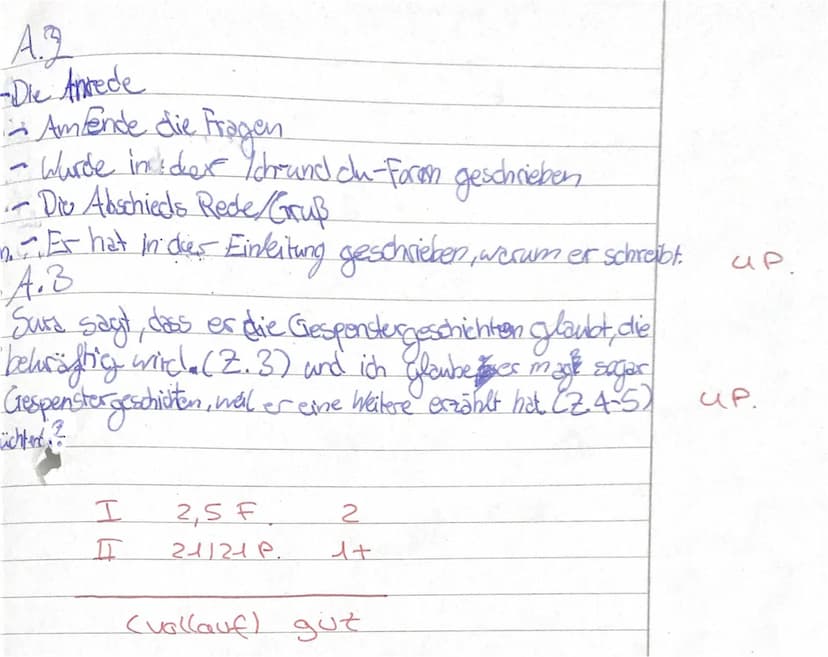 A.2
- Die Anrede
- Am Ende die Fragen
- Wurde in der Ich-und du-Form geschrieben
- Die Abschieds Rede/Gruß
n. - Er hat in der Einleitung geschrieben, warum er schreibt. 4P.
A.3
Sura sagt, dass er die Gespenstergeschichten glaubt, die
bekräftig wird. (Z.3) und ich glaube er mag sogar
Gespenstergeschichten, weil er eine Weitere erzählt hat. (Z.4-5) 4P.
üchtert.?
I 2,5 F. 2
II 21/21 P. 1+
(vollauf) gut